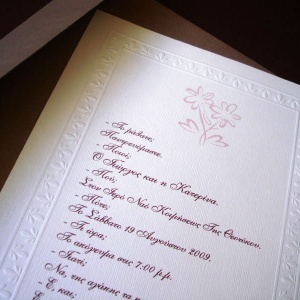 - Το μάθατε;
Παντρευόμαστε.
- Ποιοί;
Ο Γιώργος και η Κατερίνα.
- Πού;
Στον Ιερό Ναό Κοιμήσεως Της Θεοτόκου.
- Πότε;
Το Σάββατο 19 Αυγούστου 2009.
- Τι ώρα;
Το απόγευμα στις 7:00 μ.μ.
- Γιατί;
Να, της αγάπης τα
- Ε, και;